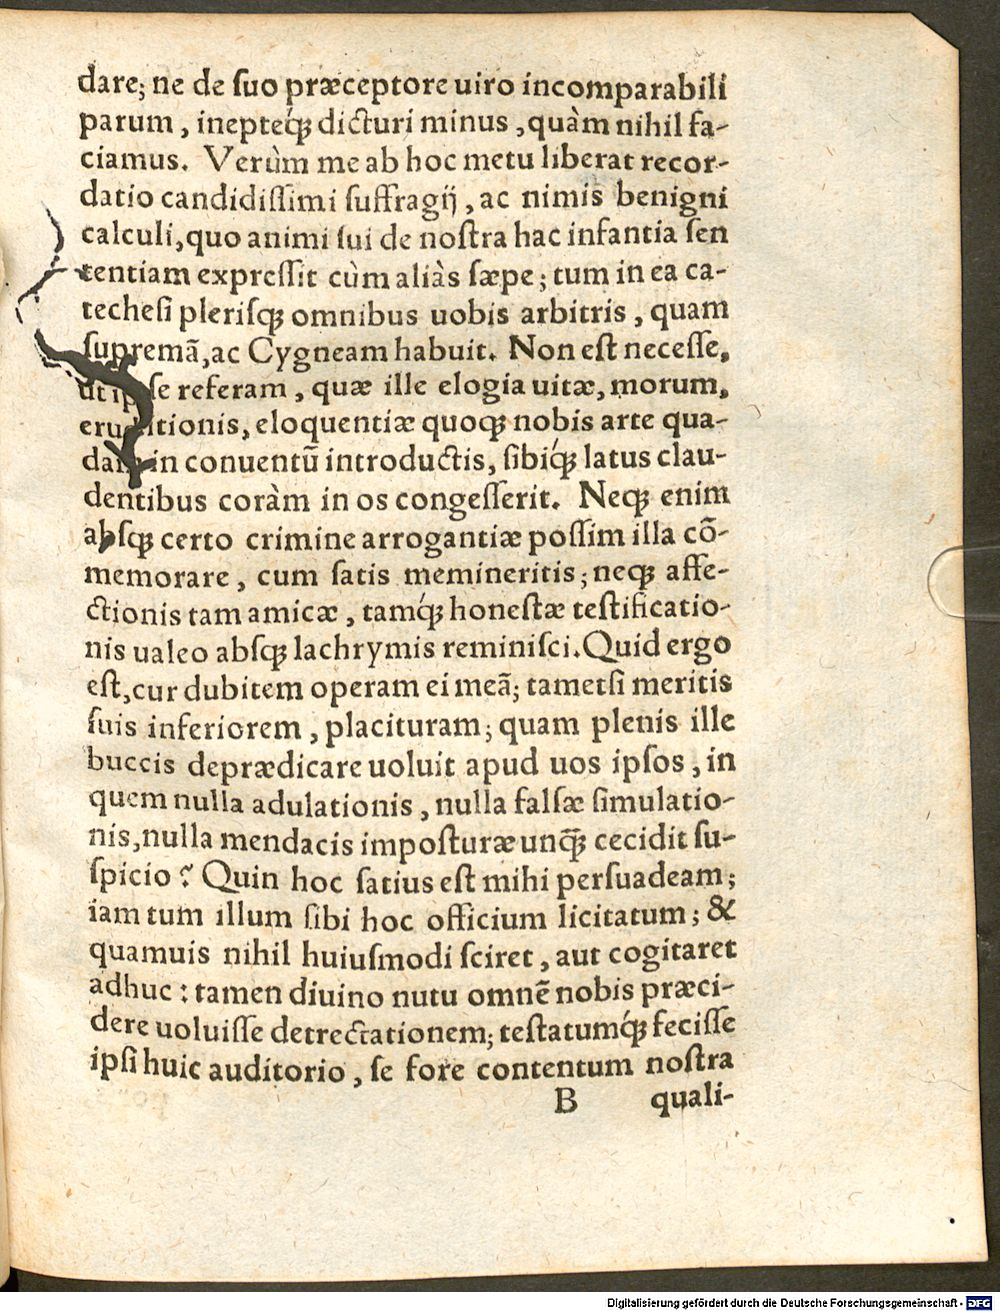 dare; ne de ſuo præceptore uiro incomparabili
parum, inepteq́ꝫ dicturi minus, quàm nihil fa-
ciamus. Verùm me ab hoc metu liberat recor-
datio candidiſſimi ſuffragij, ac nimis benigni
calculi, quo animi ſui de noſtra hac infantia ſen
tentiam expreſſit cùm aliàs ſæpe; tum in ea ca-
techeſi pleriſqꝫ omnibus uobis arbitris, quam
ſupremã, ac Cygneam habuit. Non eſt neceſſe,
ut ipſe referam, quæ ille elogia uitæ, morum,
eruditionis, eloquentiæ quoqꝫ nobis arte qua-
dam in conuentũ introductis, ſibiq́ꝫ latus clau-
dentibus coràm in os congeſſerit. Neqꝫ enim
abſqꝫ certo crimine arrogantiæ poſſim illa cõ-
memorare, cum ſatis memineritis; neqꝫ affe-
ctionis tam amicæ, tamq́ꝫ honeſtæ teſtificatio-
nis ualeo abſqꝫ lachrymis reminiſci. Quid ergo
eſt, cur dubitem operam ei meã; tametſi meritis
ſuis inferiorem, placituram; quam plenis ille
buccis deprædicare uoluit apud uos ipſos, in
quem nulla adulationis, nulla falſæ ſimulatio-
nis, nulla mendacis impoſturæ unq̃ꝫ cecidit ſu-
ſpicio? Quin hoc ſatius eſt mihi perſuadeam;
iam tum illum ſibi hoc officium licitatum; &
quamuis nihil huiuſmodi ſciret, aut cogitaret
adhuc: tamen diuino nutu omnẽ nobis præci-
dere uoluiſſe detrectationem; teſtatumq́ꝫ feciſſe
ipſi huic auditorio, ſe fore contentum noſtra
B quali-
Digitalisierung gefördert durch die Deutsche Forschungsgemeinschaft - DFG